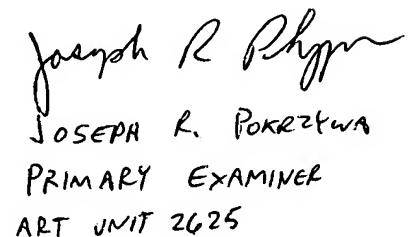 Joseph R
JOSEPH R. POKRZYWA
PRIMARY EXAMINER
ART UNIT 2625